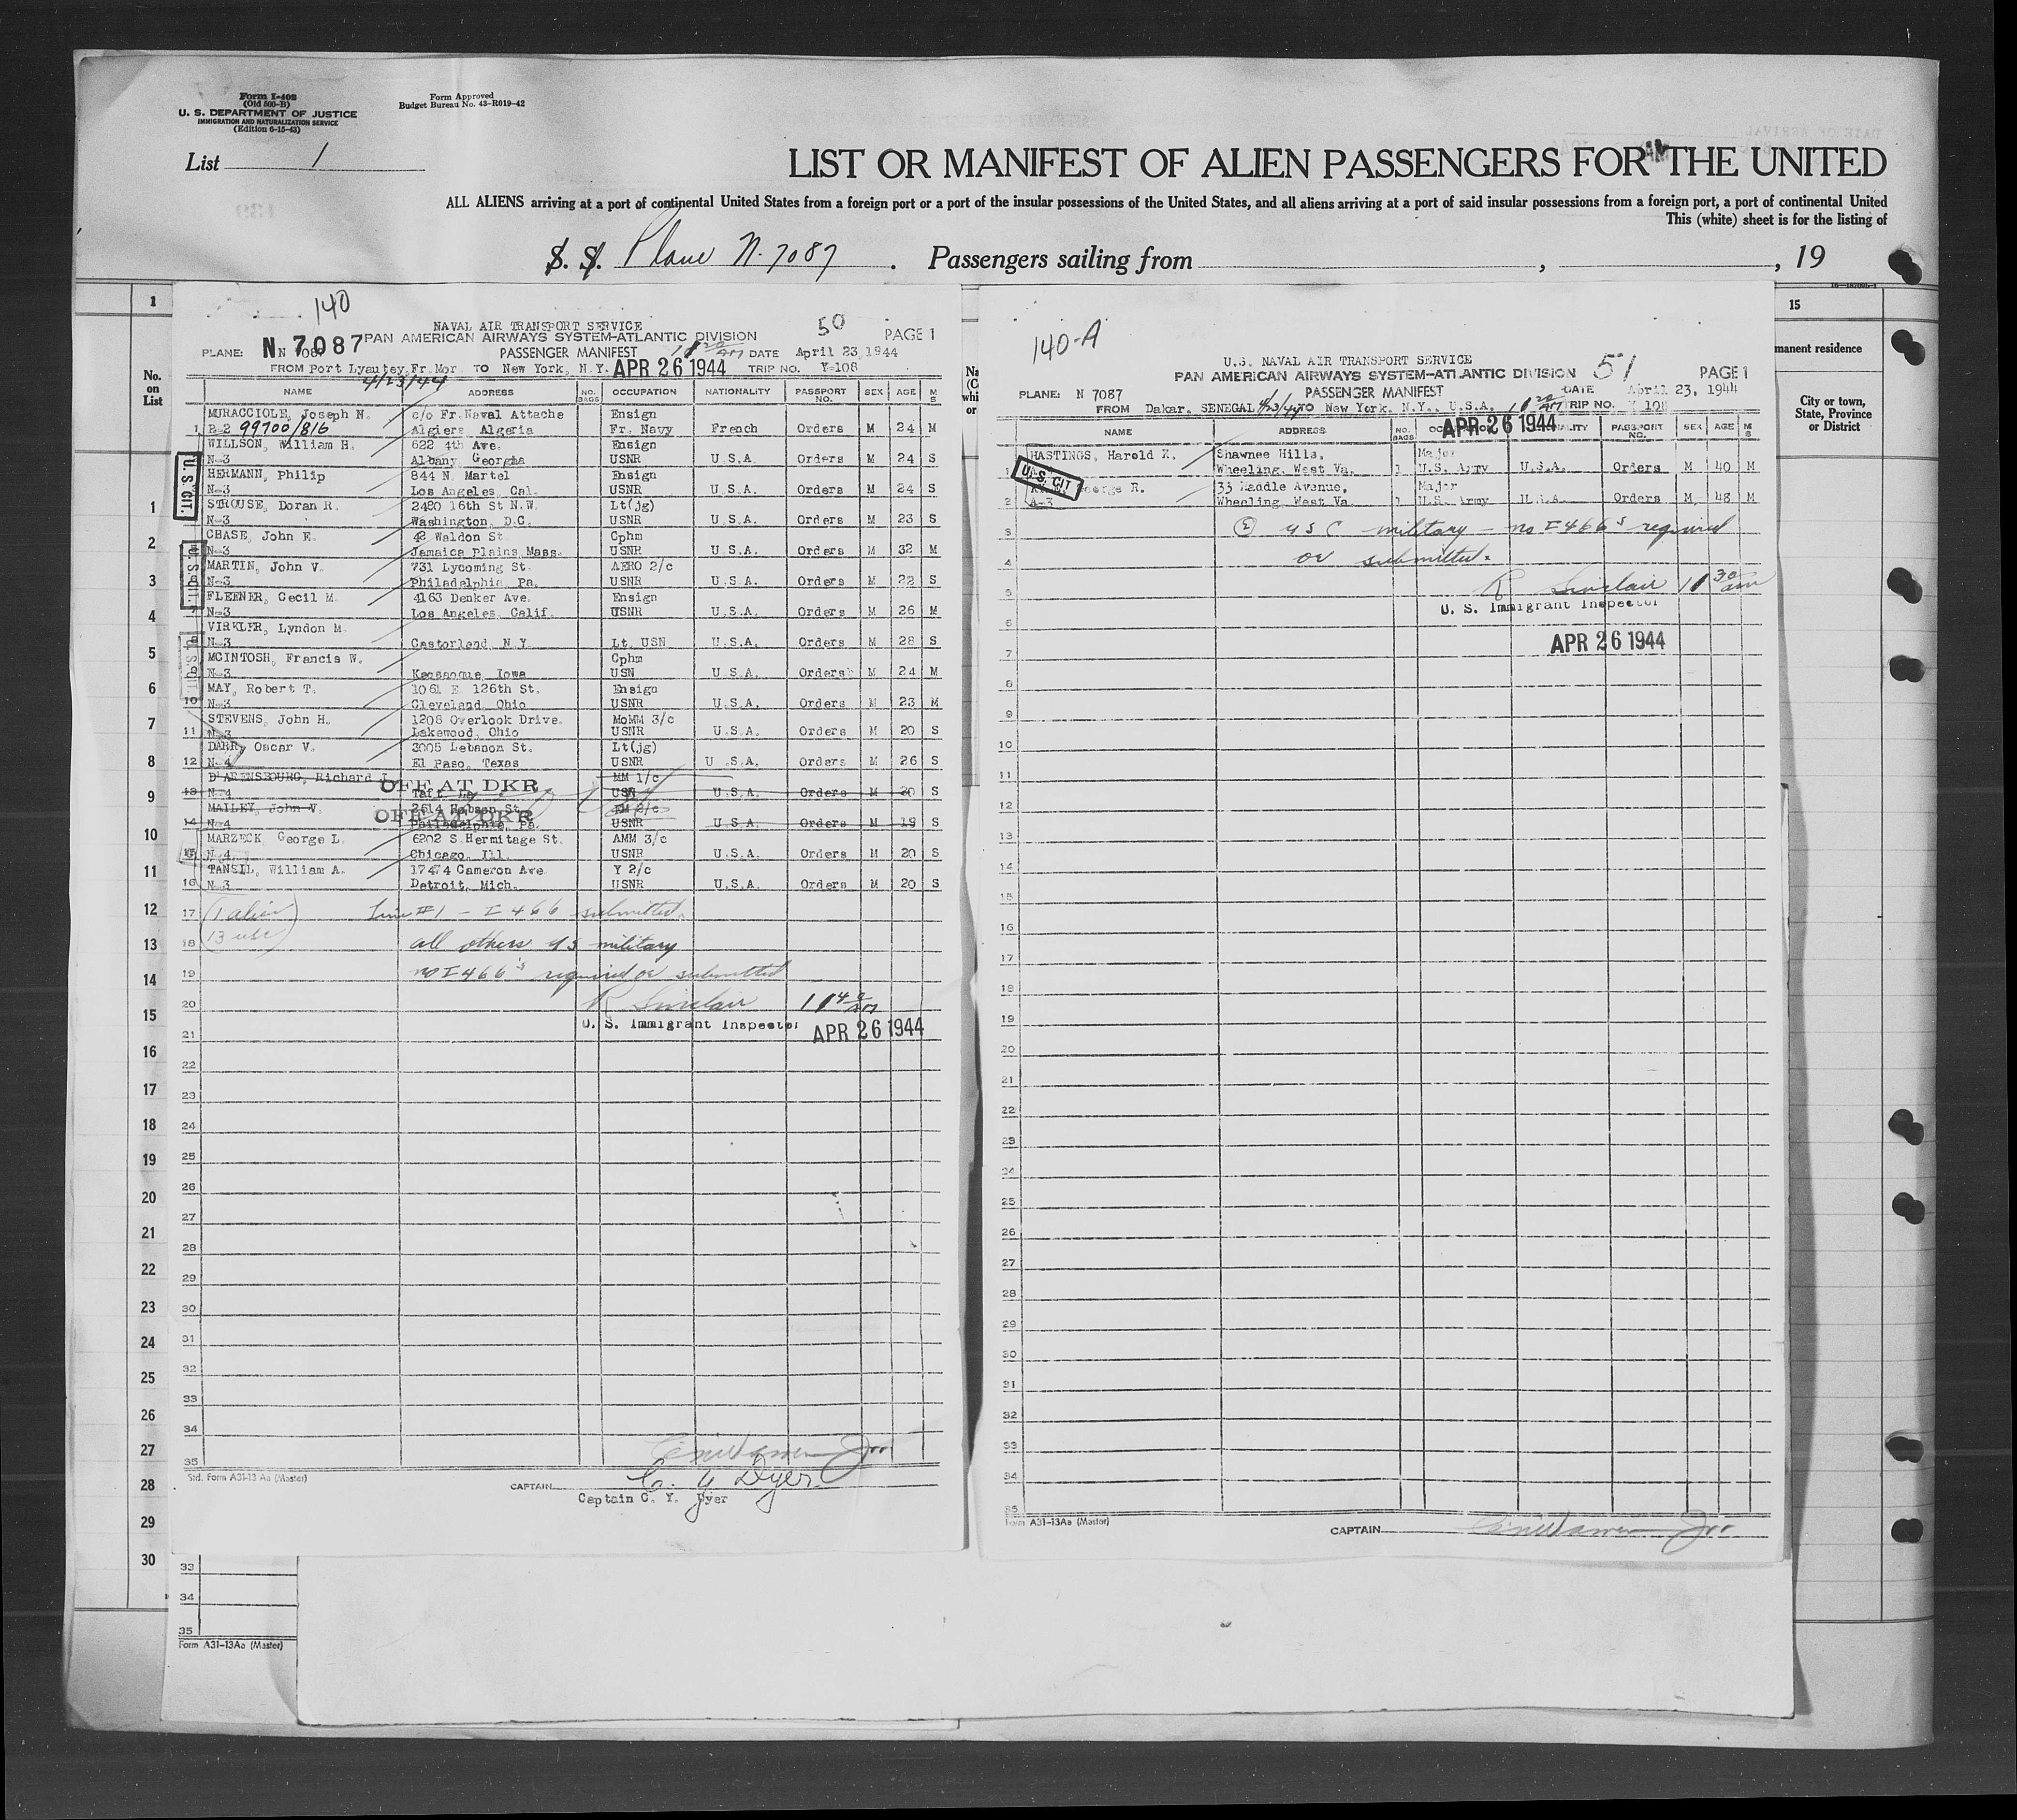 Form I-402
(Old 500-B)
U. S. DEPARTMENT OF JUSTICE
IMMIGRATION AND NATURALIZATION SERVICE
(Edition 6-15-43)
Form Approved
Budget Bureau No. 43-R019-42
List 1
LIST OR MANIFEST OF ALIEN PASSENGERS FOR THE UNITED
ALL ALIENS arriving at a port of continental United States from a foreign port or a port of the insular possessions of the United States, and all aliens arriving at a port of said insular possessions from a foreign port, a port of continental United
This (white) sheet is for the listing of
S. S. Plane N-7087 . Passengers sailing from , , 19
140
NAVAL AIR TRANSPORT SERVICE 50
PAN AMERICAN AIRWAYS SYSTEM-ATLANTIC DIVISION PAGE 1
PLANE: N 7087 PASSENGER MANIFEST DATE April 23, 1944
FROM Port Lyautey, Fr. Mor TO New York, N.Y. APR 26 1944 TRIP NO. Y-108
4/23/44
NAME ADDRESS NO. BAGS OCCUPATION NATIONALITY PASSPORT NO. SEX AGE M S
MURACCIOLE, Joseph N. c/o Fr. Naval Attache Ensign
1 R-2 99700/816 Algiers Algeria Fr. Navy French Orders M 24 M
WILLSON, William H. 622 4th Ave. Ensign
N-3 Albany Georgia USNR U.S.A. Orders M 24 S
HERMANN, Philip 844 N. Martel Ensign
N-3 Los Angeles, Cal. USNR U.S.A. Orders M 24 S
STROUSE, Doran R. 2480 16th St N.W. Lt(jg)
N-3 Washington, D.C. USNR U.S.A. Orders M 23 S
CHASE, John E. 42 Waldon St. Cphm
N-3 Jamaica Plains Mass. USNR U.S.A. Orders M 32 M
MARTIN, John V. 731 Lycoming St. AERO 2/c
N-3 Philadelphia, Pa. USNR U.S.A. Orders M 22 S
FLEENER, Cecil M. 4163 Denker Ave. Ensign
N-3 Los Angeles, Calif. USNR U.S.A. Orders M 26 M
VIRKLER, Lyndon M.
N-3 Castorland, N.Y. Lt. USN U.S.A. Orders M 28 S
MCINTOSH, Francis W. Cphm
N-3 Iowa USN U.S.A. Orders M 24 M
MAY, Robert T. 1061 E. 126th St. Ensign
10 N-3 Cleveland, Ohio USNR U.S.A. Orders M 23 M
STEVENS, John H. 1208 Overlook Drive. MoMM 3/c
11 N-3 Lakewood, Ohio USNR U.S.A. Orders M 20 S
DARR, Oscar V. 3005 Lebanon St. Lt(jg)
12 N-4 El Paso, Texas USNR U.S.A. Orders M 26 S
D'ARENSBOURG, Richard J. OFF AT DKR MM 1/c
13 N-4 Taft, La USN U.S.A. Orders M 20 S
MAILEY, John V. 2614 Hobson St. EM 2/c
14 N-4 OFF AT DKR Philadelphia, Pa. USNR U.S.A. Orders M 19 S
MARZECK, George L. 6202 S. Hermitage St. AMM 3/c
15 N-4 Chicago, Ill. USNR U.S.A. Orders M 20 S
TANSIL, William A. 17474 Cameron Ave. Y 2/c
16 N-3 Detroit, Mich. USNR U.S.A. Orders M 20 S
U.S. CIT.
U.S. CIT.
U.S. CIT.
17 1 alien Line #1 - I 466 submitted.
18 13 usc all others US military
19 no I 466's required or submitted
20 R Sinclair 11 40 AM
U. S. Immigrant Inspector APR 26 1944
21
22
23
24
25
26
27
28
29
30
31
32
33
34
35
Std. Form A31-13 Aa (Master)
CAPTAIN C. Y Dyer
Captain C. Y. Dyer
140-A
U.S. NAVAL AIR TRANSPORT SERVICE 51
PAN AMERICAN AIRWAYS SYSTEM-ATLANTIC DIVISION PAGE 1
PLANE: N 7087 PASSENGER MANIFEST DATE April 23, 1944
FROM Dakar, SENEGAL 4/23/44 TO New York, N.Y., U.S.A. TRIP NO. Y 108
APR 26 1944
NAME ADDRESS NO. BAGS PASSPORT NO. SEX AGE M S
HASTINGS, Harold X. Shawnee Hills, Major
1 Wheeling, West Va. 1 U.S. Army U.S.A. Orders M 40 M
U.S. CIT
George R. 33 Waddle Avenue, Major
2 A-3 Wheeling, West Va. 1 U.S. Army U.S.A. Orders M 48 M
3 (2) USC military - no I 466's required
4 or submitted.
5 R Sinclair 11 30 am
U. S. Immigrant Inspector
6
APR 26 1944
7
8
9
10
11
12
13
14
15
16
17
18
19
20
21
22
23
24
25
26
27
28
29
30
31
32
33
34
35
Form A31-13Aa (Master)
CAPTAIN
15
manent residence
City or town,
State, Province
or District
No.
on
List
1
1
2
3
4
5
6
7
8
9
10
11
12
13
14
15
16
17
18
19
20
21
22
23
24
25
26
27
28
29
30
33
34
35
Form A31-13Aa (Master)